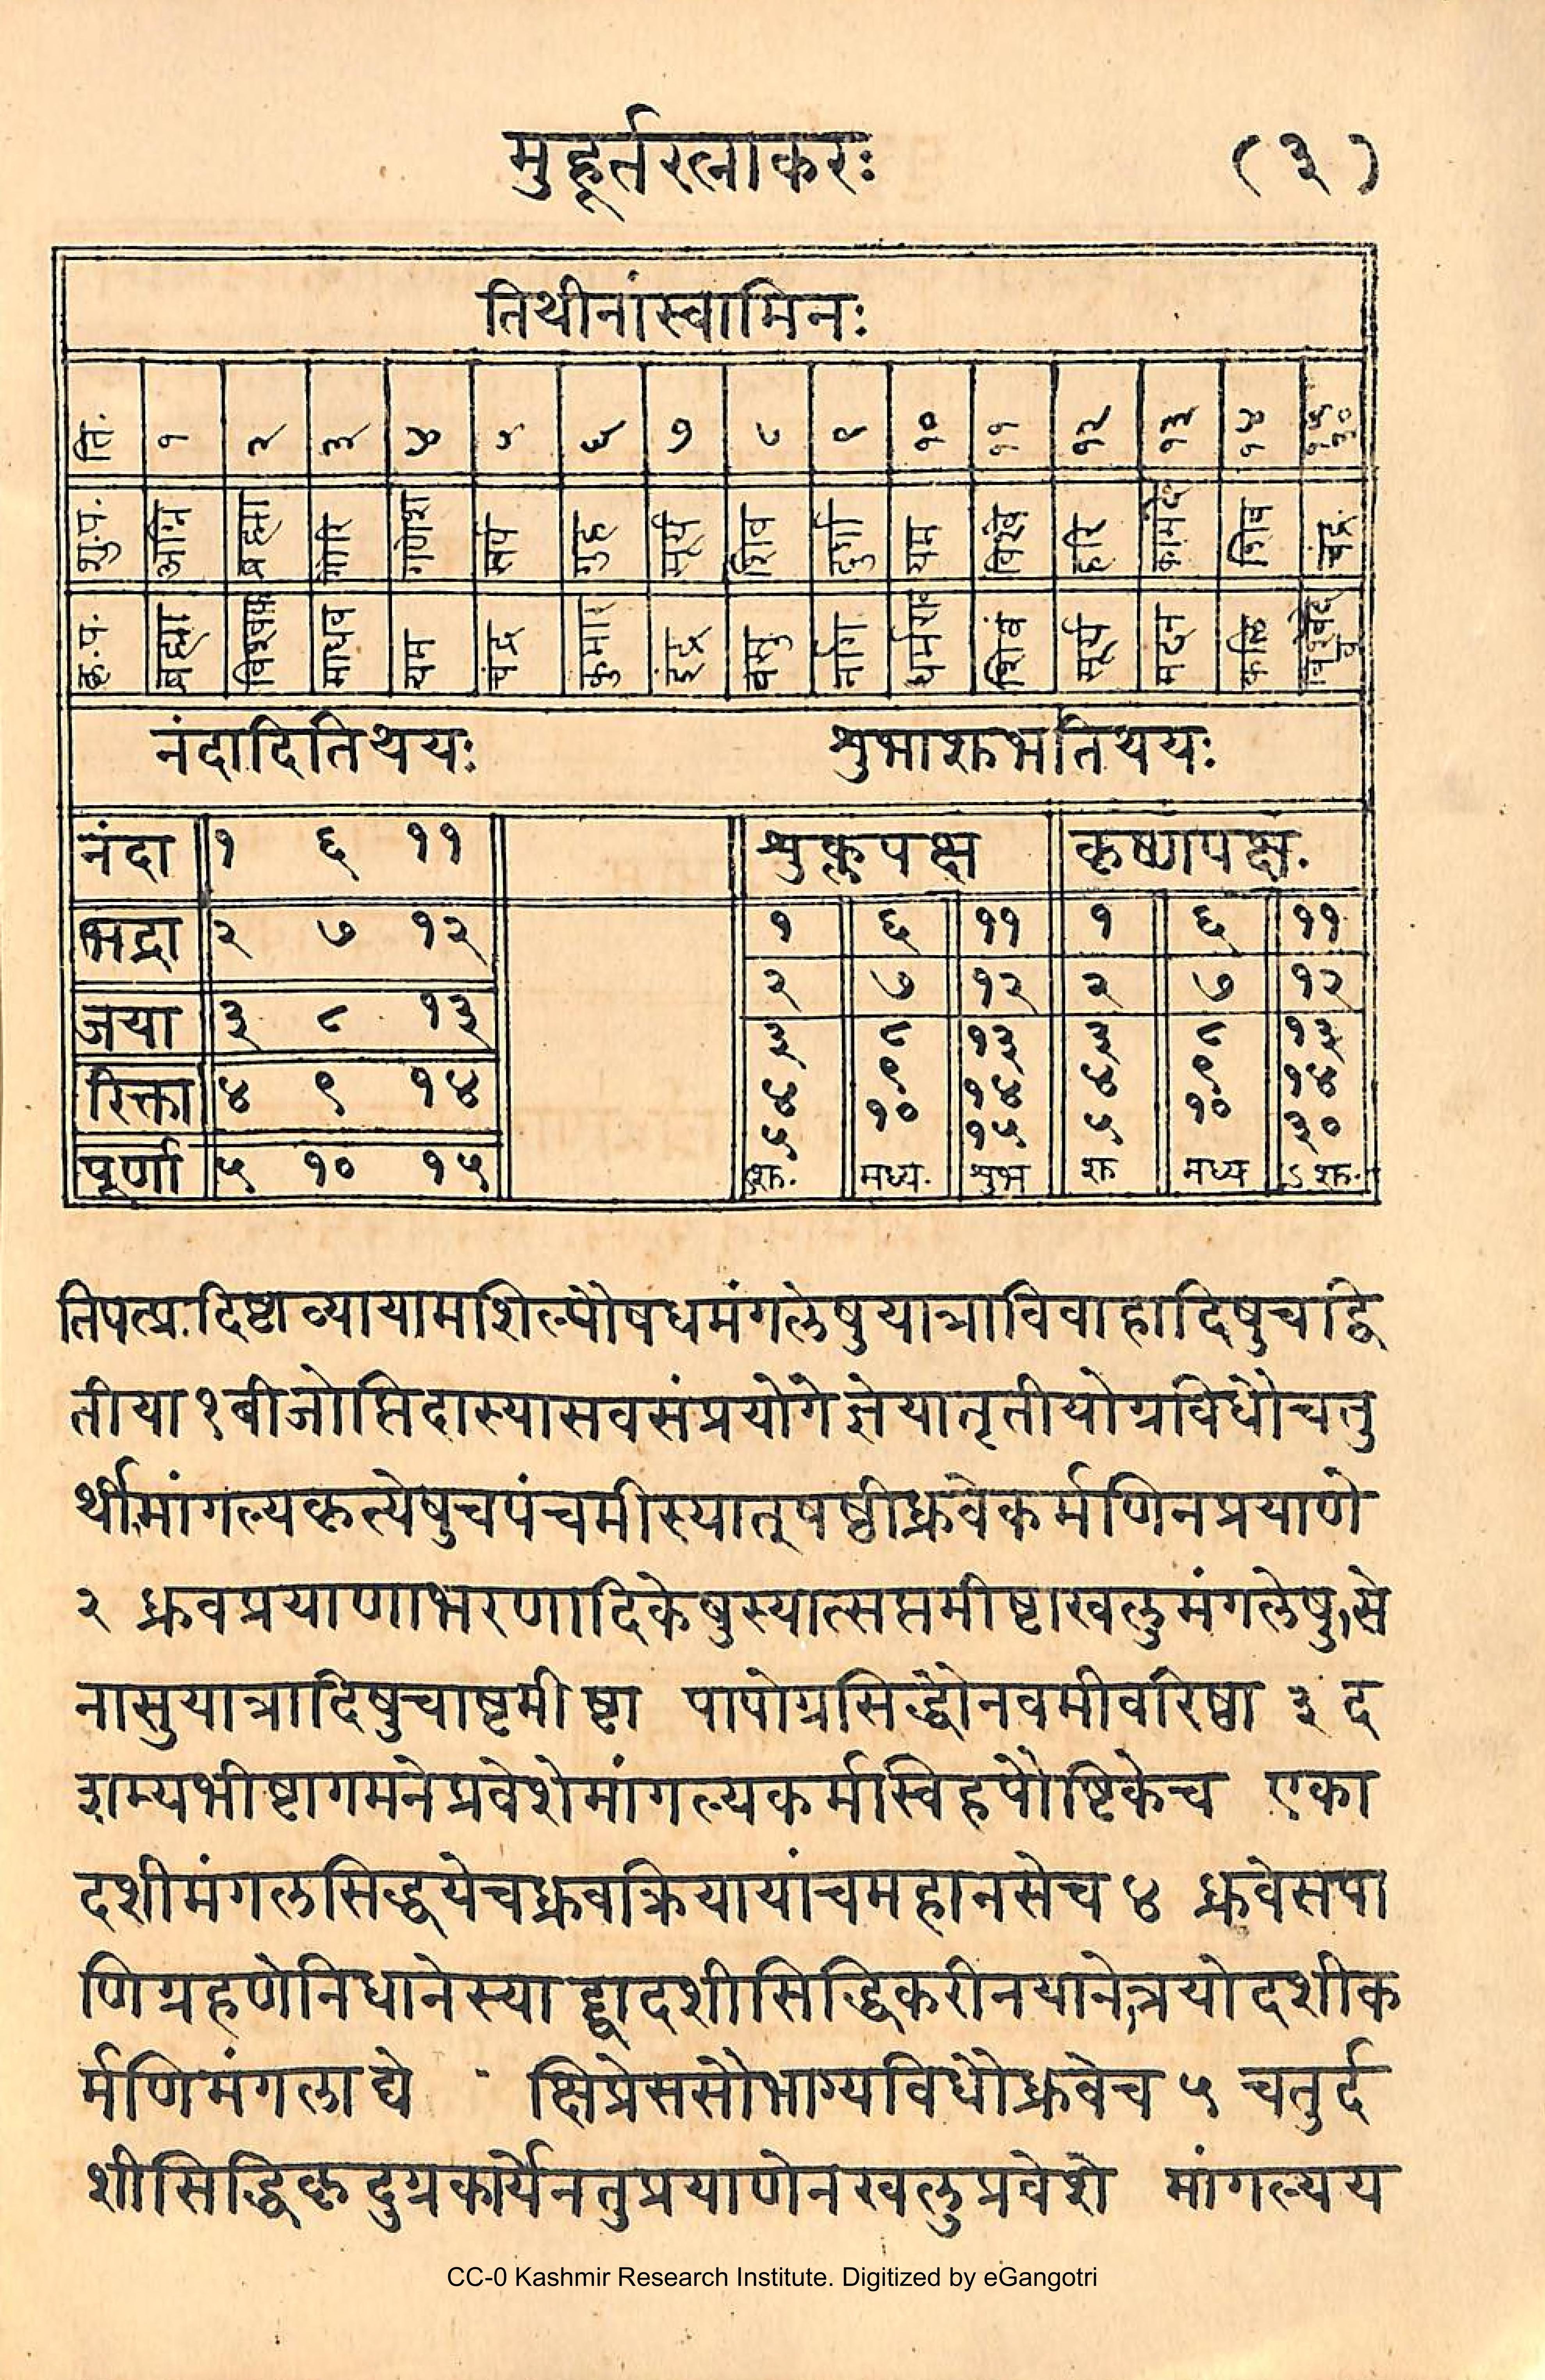 मुहूर्तरत्नाकरः (३)
तिथीनांस्वामिनः
ति. १ २ ३ ४ ५ ६ ७ ८ ९ १० ११ १२ १३ १४ १५ ३०
शु.प. अग्नि ब्रह्मा गौरि गणेश सर्प गुह सूर्य शिव दुर्गा यम विश्वे हरि कामदे शिव चंद्र.
कृ.प. ब्रह्मा माधव यम चंद्र कुमार इंद्र वसु नाग धर्मरा शिव सूर्य मदन कलि
नंदादितिथयः शुभाशुभतिथयः
नंदा १ ६ ११ शुक्लपक्ष कृष्णपक्ष.
भद्रा २ ७ १२ १ ६ ११ १ ६ ११
२ ७ १२ २ ७ १२
जया ३ ८ १३ ३ ८ १३ ३ ८ १३
रिक्ता ४ ९ १४ ४ ९ १४ ४ ९ १४
५ १० १५ ५ १० ३०
पूर्णा ५ १० १५ ऽशु. मध्य. शुभ शु मध्य ऽशु.
तिपत्प्रदिष्टाव्यायामशिल्पौषधमंगलेषुयात्राविवाहादिषुचाद्वि
तीया१बीजोप्तिदास्यासवसंप्रयोगेज्ञेयातृतीयोग्रविधौचतु
र्थीमांगल्यकृत्येषुचपंचमीस्यात्षष्ठीध्रुवेकर्मणिनप्रयाणे
२ ध्रुवप्रयाणाभरणादिकेषुस्यात्सप्तमीष्टाखलुमंगलेषु,से
नासुयात्रादिषुचाष्टमीष्टा पापोग्रसिद्धौनवमीवरिष्ठा ३ द
शम्यभीष्टागमनेप्रवेशेमांगल्यकर्मस्विहपौष्टिकेच एका
दशीमंगलसिद्धयेचध्रुवक्रियायांचमहानसेच ४ ध्रुवेसपा
णिग्रहणेनिधानेस्याद्द्वादशीसिद्धिकरीनयाने,त्रयोदशीक
र्मणिमंगलाद्ये क्षिप्रेससौभाग्यविधौध्रुवेच ५ चतुर्द
शीसिद्धिकृदुग्रकार्येनतुप्रयाणेनखलुप्रवेशे मांगल्यय
CC-0 Kashmir Research Institute. Digitized by eGangotri